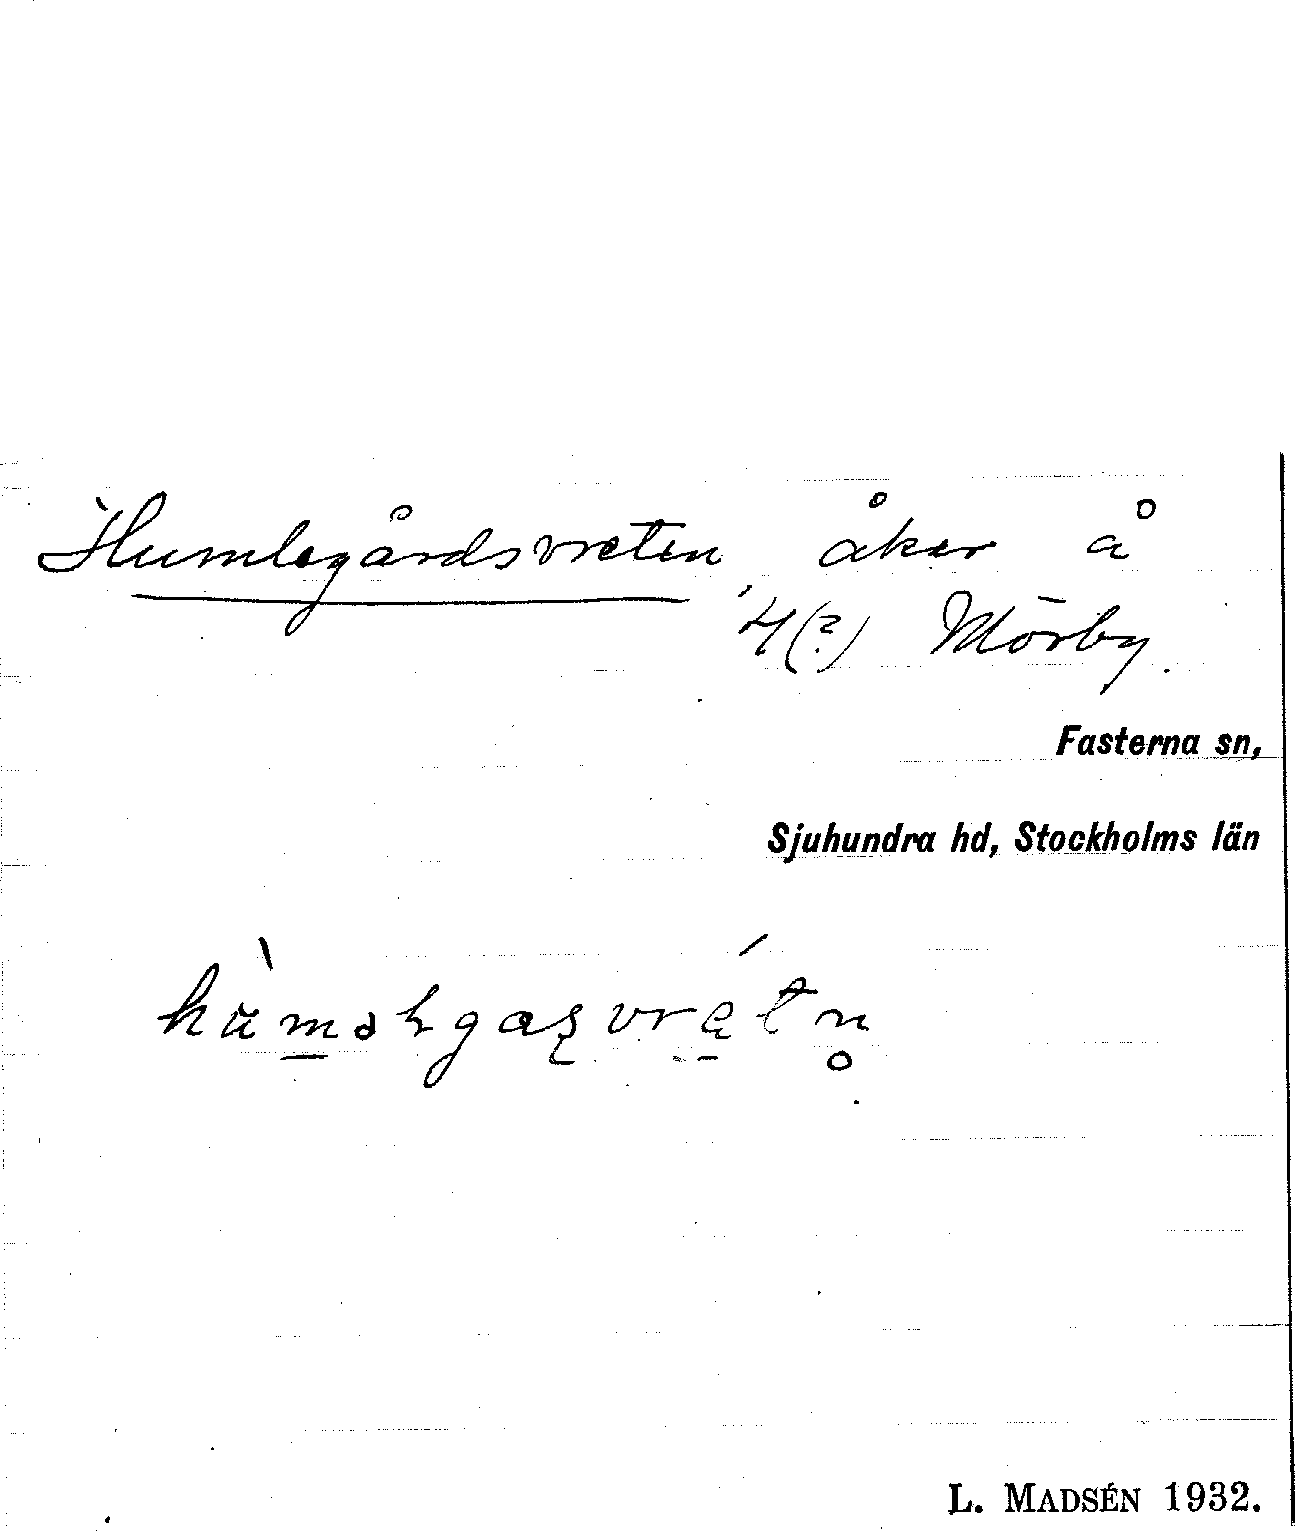 Humlegårdsvreten åker å
4(?) Mörby.
Fasterna sn,
Sjuhundra hd, Stockholms län
L. MADSÉN 1932.